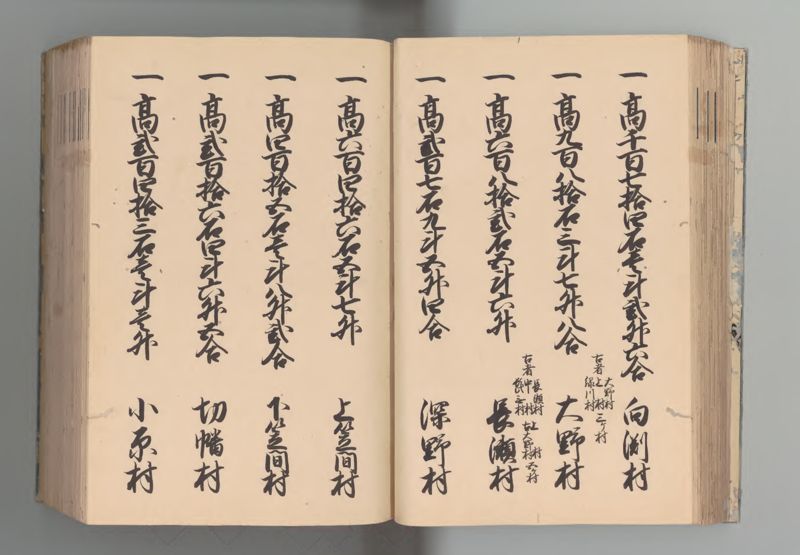 一 高千百七拾四石壱斗弐升六合 向渕村
一 高九百八拾石三斗七升八合 大野村
古者 大野村 上村 緑川村 三ヶ村
一 高六百八拾弐石五斗六升 長瀬村
古者 長瀬村 中村
上村 大野村 五ヶ村
一 高弐百七石九斗五升四合 深野村
一 高六百四拾六石五斗七升 上笠間村
一 高四百拾五石壱斗八升弐合 下笠間村
一 高弐百拾六石四斗六升五合 切幡村
一 高弐百四拾三石壱斗壱升 小原村